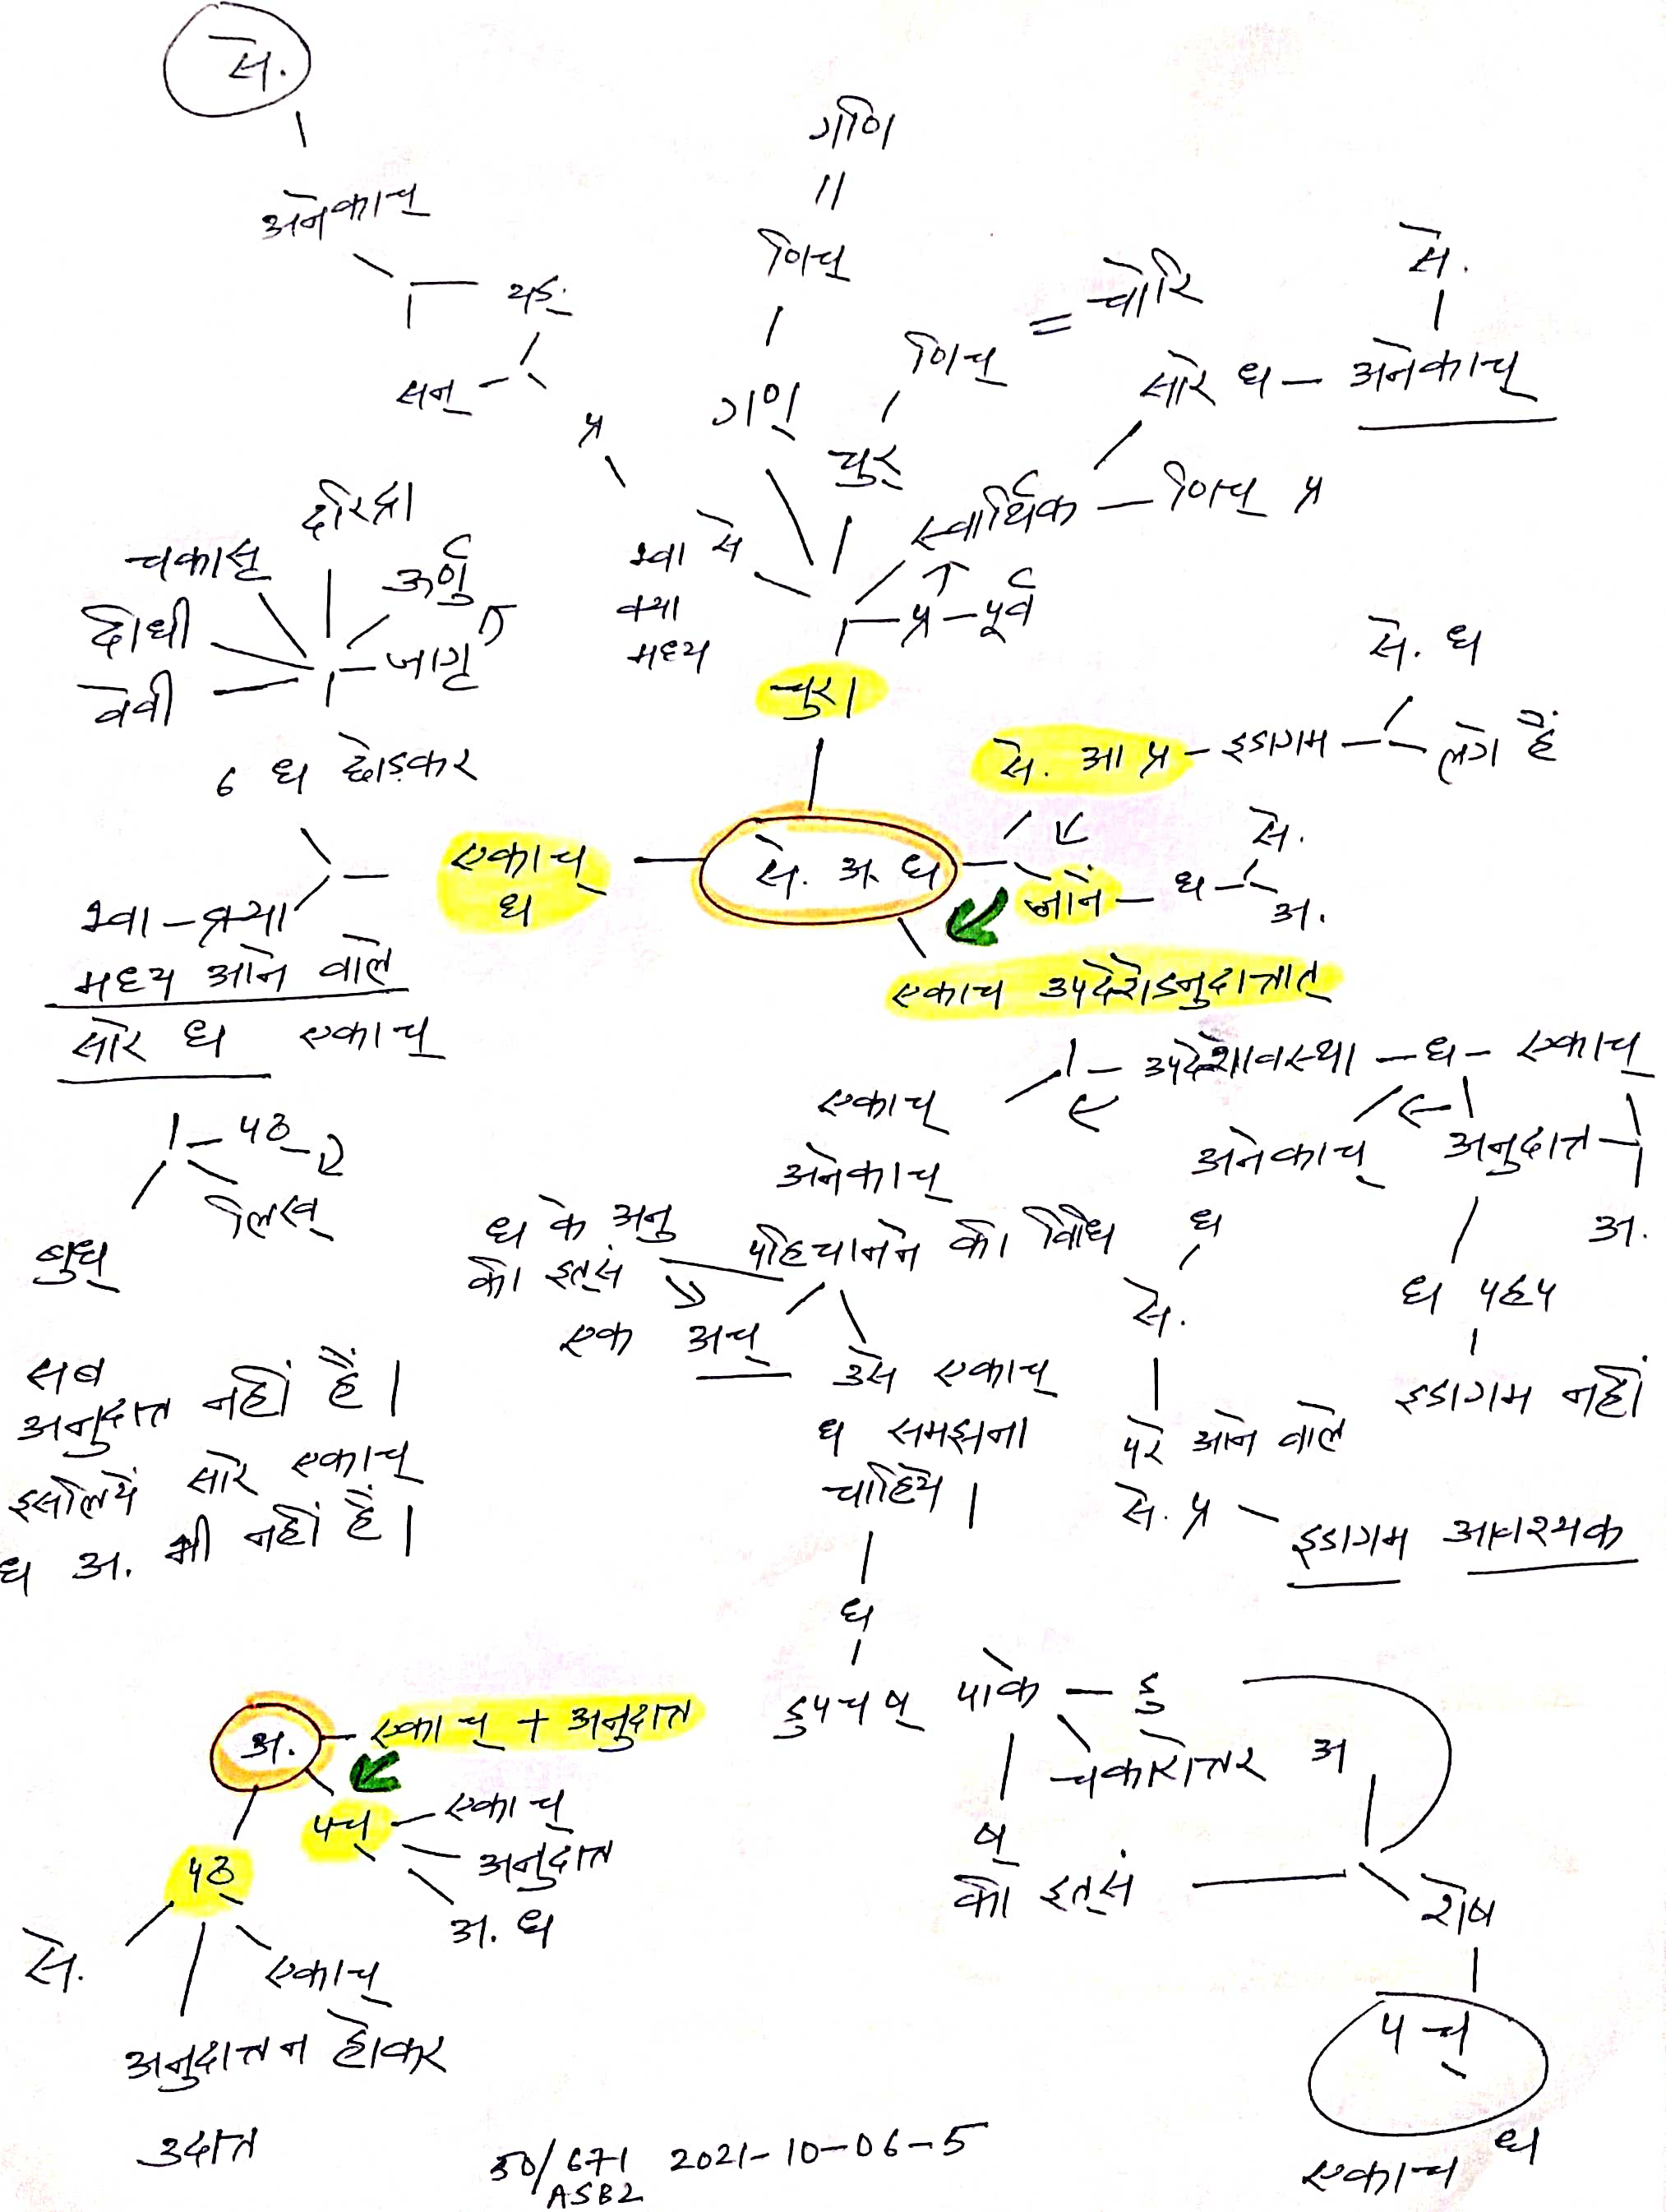 से.
अनेकाच्
यङ्
सन्
प्र
गणि
॥
णिच्
।
गण्
णिच् = चोरि
चुर्
से.
सारे ध — अनेकाच्
स्वार्थिक — णिच् प्र
प्र — पूर्व
भ्वा से
क्र्या
मध्य
चुरा
दरिद्रा
चकासृ
ऊर्णु
दीधी
जागृ
वेवी
6 ध छोड़कर
भ्वा – क्र्या
मध्य आने वाले
सारे ध एकाच्
पठ्
लिख्
बुध्
एकाच्
ध
से. अ. ध
से. ध
से. आ प्र – इडागम – लगे हैं
से.
जाने – ध
अ.
एकाच उपदेशेऽनुदात्तात्
उपदेशावस्था – ध – एकाच्
एकाच्
अनेकाच्
अनेकाच् अनुदात्त
अ.
ध के अनु
की इत्सं
पहिचानने की विधि
ध
से.
ध
इडागम नहीं
एक अच्
उसे एकाच्
ध समझना
चाहिये।
परे आने वाले
से. प्र – इडागम आवश्यक
सब
अनुदात्त नहीं हैं।
इसलिये सारे एकाच्
ध अ. भी नहीं हैं।
ध
डुपचष् पाके – डु
चकारोत्तर अ
ष्
की इत्सं
शेष
पच्
एकाच ध
अ. – एकाच् + अनुदात्त
पच् – एकाच्
अनुदात्त
अ. ध
पठ्
से.
एकाच्
अनुदात्त न होकर
उदात्त
50/671 2021-10-06-5
ASB2